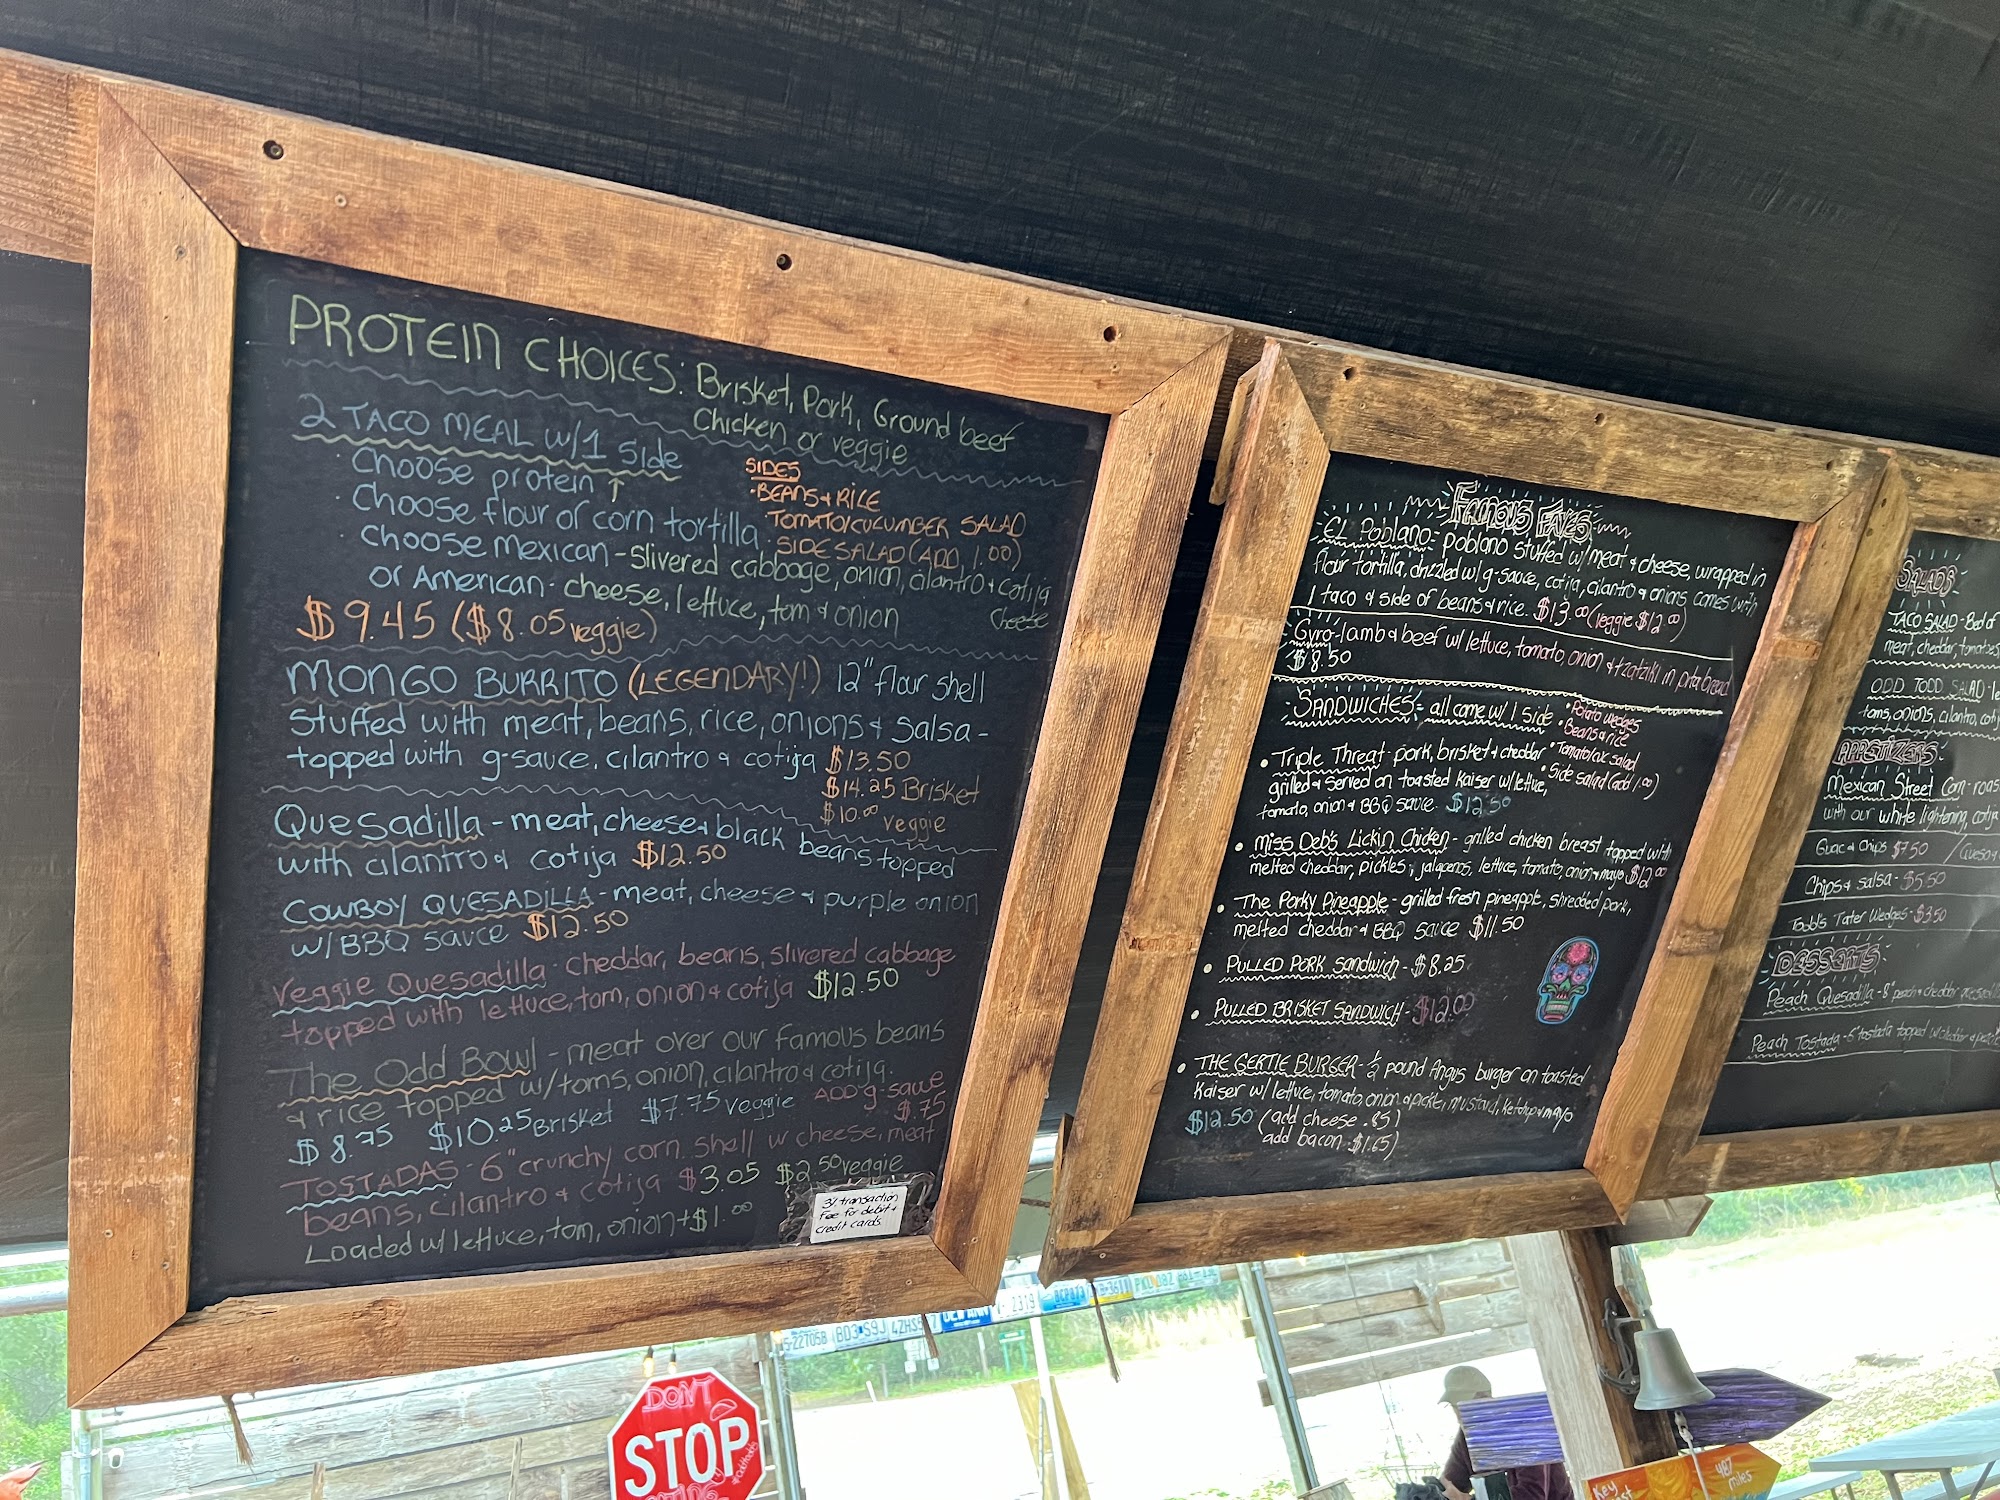 PROTEIN CHOICES: Brisket, Pork, Ground beef
Chicken or veggie
2 TACO MEAL w/1 side
· Choose protein ↑
· Choose flour or corn tortilla
· Choose Mexican - slivered cabbage, onion, cilantro & cotija cheese
or American - cheese, lettuce, tom & onion
$9.45 ($8.05 veggie)
SIDES
· BEANS & RICE
· TOMATO/CUCUMBER SALAD
· SIDE SALAD (ADD 1.00)
MONGO BURRITO (LEGENDARY!) 12" flour shell
stuffed with meat, beans, rice, onions & salsa -
topped with g-sauce, cilantro & cotija $13.50
$14.25 Brisket
$10.00 veggie
Quesadilla - meat, cheese & black beans topped
with cilantro & cotija $12.50
COWBOY QUESADILLA - meat, cheese & purple onion
w/BBQ sauce $12.50
Veggie Quesadilla - cheddar, beans, slivered cabbage
topped with lettuce, tom, onion & cotija $12.50
The Odd Bowl - meat over our famous beans
& rice topped w/toms, onion, cilantro & cotija.
$8.75 $10.25 Brisket $7.75 veggie ADD g-sauce
$.75
TOSTADAS - 6" crunchy corn shell w cheese, meat
beans, cilantro & cotija $3.05 $2.50 veggie
Loaded w/lettuce, tom, onion + $1.00
3% transaction
fee for debit &
credit cards
Famous Faves
EL Poblano - poblano stuffed w/meat & cheese, wrapped in
flour tortilla, drizzled w/g-sauce, cotija, cilantro & onions comes with
1 taco & side of beans & rice. $13.00 (veggie $12.00)
Gyro - lamb & beef w/ lettuce, tomato, onion & tzatziki in pita bread
$8.50
SANDWICHES - all come w/1 side
• Potato wedges
• Beans & rice
• Tomato/cuc salad
• Side salad (add 1.00)
• Triple Threat - pork, brisket & cheddar
grilled & served on toasted kaiser w/lettuce,
tomato, onion & BBQ sauce $12.50
• Miss Deb's Lickin Chicken - grilled chicken breast topped with
melted cheddar, pickles, jalapenos, lettuce, tomato, onion & mayo $12.00
• The Porky Pineapple - grilled fresh pineapple, shredded pork,
melted cheddar & BBQ sauce $11.50
• PULLED PORK Sandwich - $8.25
• PULLED BRISKET SANDWICH - $12.00
• THE GERTIE BURGER - ½ pound Angus burger on toasted
kaiser w/ lettuce, tomato, onion & pickle, mustard, ketchup & mayo
$12.50 (add cheese .85)
add bacon $1.65)
SALADS
TACO SALAD - Bed of
meat, cheddar, tomatoes
ODD TODD SALAD - le
toms, onions, cilantro, coti
APPETIZERS
Mexican Street Corn - roas
with our white lightening, cotija
Guac & Chips $7.50 / Queso &
Chips & salsa - $5.50
Todd's Tater Wedges - $3.50
DESSERTS
Peach Quesadilla - 8" peach & cheddar
Peach Tostada - 6" tostada topped w/cheddar &
DON'T
STOP
BD3 S9J